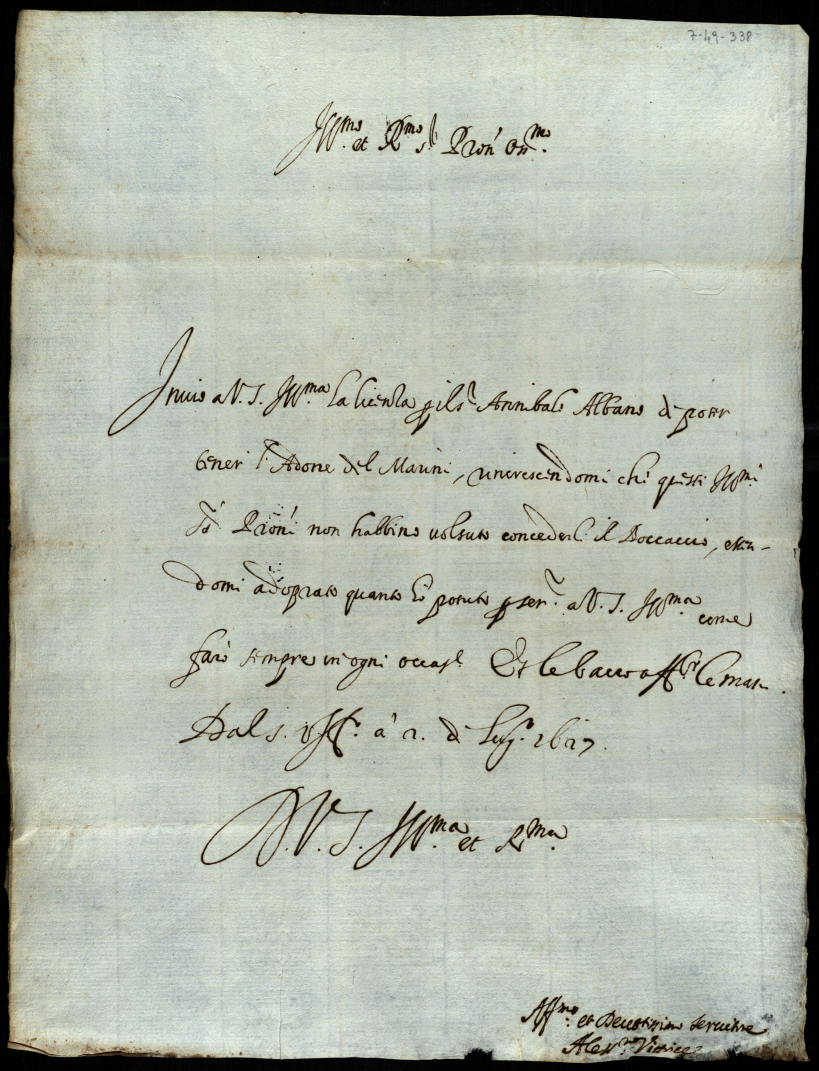 7-49-338
Ill.mo et R.mo s.r Pron' oss.mo
Invio a V. S. Ill.ma la licenza p il s.r Annibale Albano di poter
tener l'Adone del Marini, increscendomi che questi Ill.mi
S.ri Proni non habbino voluto conceder il Boccaccio, essen-
domi adoprato quanto hò potuto p ser.r a V. S. Ill.ma come
farò sempre in ogni occas.e Et le bacio aff.te le mani.
Dal s. Uff.o à 2. di lug.o 1627.
D. V. S. Ill.ma et R.ma
Aff.mo et Devotissimo servitore
Aless.ro Vittrice